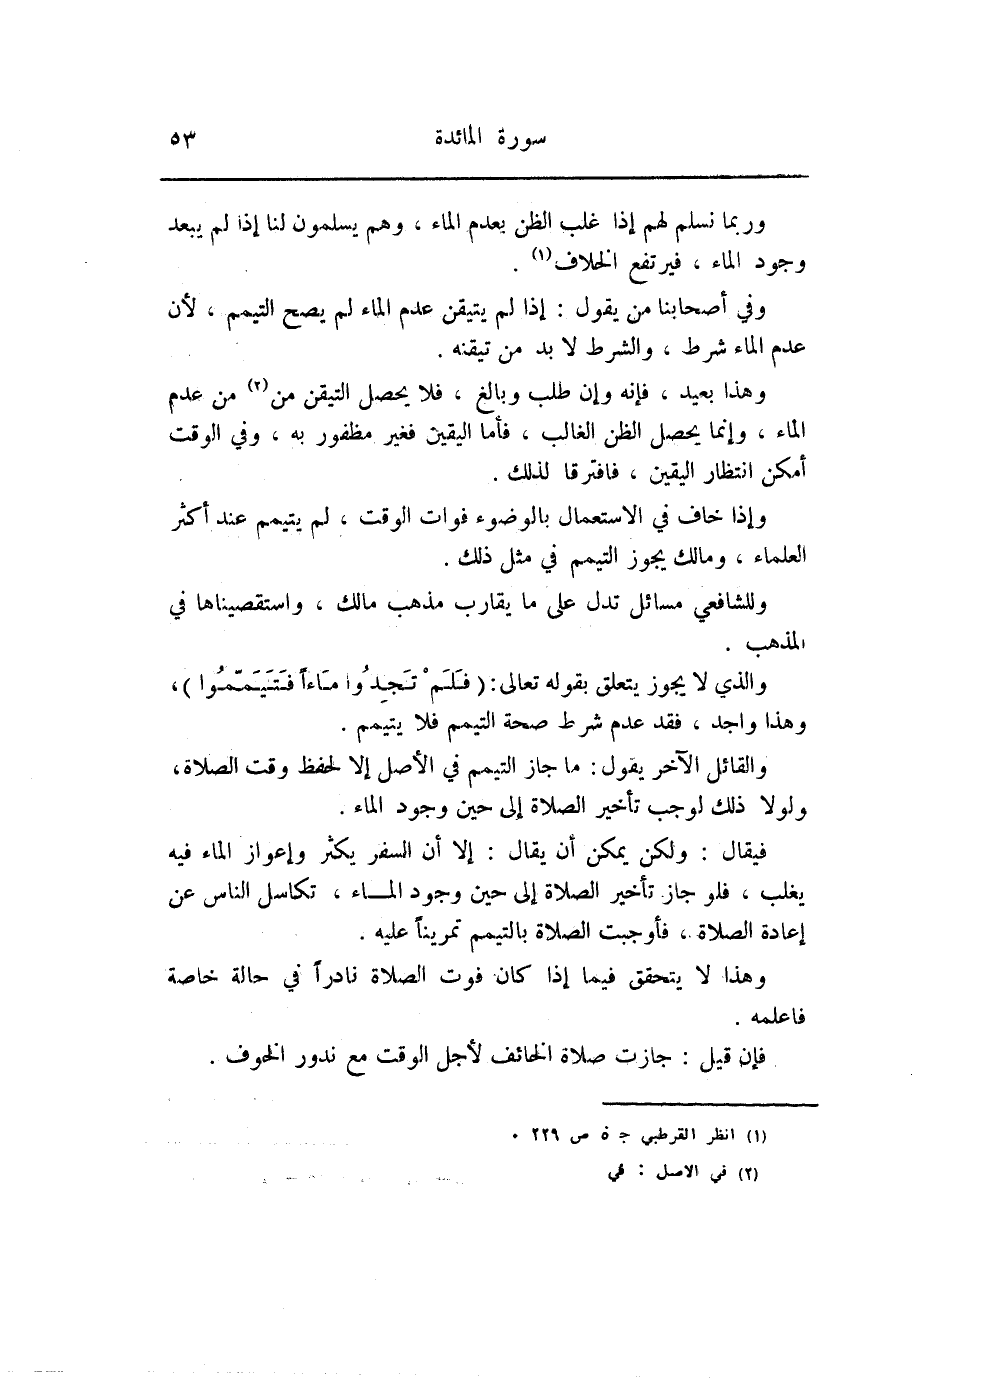 سورة المائدة ٥٣
وربما نسلم لهم إذا غلب الظن بعدم الماء ، وهم يسلمون لنا إذا لم يبعد
وجود الماء ، فيرتفع الخلاف(١) .
وفي أصحابنا من يقول : إذا لم يتيقن عدم الماء لم يصح التيمم ، لأن
عدم الماء شرط ، والشرط لا بد من تيقنه .
وهذا بعيد ، فإنه وإن طلب وبالغ ، فلا يحصل التيقن من(٢) من عدم
الماء ، وإنما يحصل الظن الغالب ، فأما اليقين فغير مظفور به ، وفي الوقت
أمكن انتظار اليقين ، فافترقا لذلك .
وإذا خاف في الاستعمال بالوضوء فوات الوقت ، لم يتيمم عند أكثر
العلماء ، ومالك يجوز التيمم في مثل ذلك .
وللشافعي مسائل تدل على ما يقارب مذهب مالك ، واستقصيناها في
المذهب .
والذي لا يجوز يتعلق بقوله تعالى: ( فَلَمْ تَجِدُوا مَاءاً فَتَيَمَّمُوا ) ،
وهذا واجد ، فقد عدم شرط صحة التيمم فلا يتيمم .
والقائل الآخر يقول: ما جاز التيمم في الأصل إلا لحفظ وقت الصلاة،
ولولا ذلك لوجب تأخير الصلاة إلى حين وجود الماء .
فيقال : ولكن يمكن أن يقال : إلا أن السفر يكثر وإعواز الماء فيه
يغلب ، فلو جاز تأخير الصلاة إلى حين وجود المـــاء ، تكاسل الناس عن
إعادة الصلاة ، فأوجبت الصلاة بالتيمم تمريناً عليه .
وهذا لا يتحقق فيما إذا كان فوت الصلاة نادراً في حالة خاصة
فاعلمه .
فإن قيل : جازت صلاة الخائف لأجل الوقت مع ندور الخوف .
(١) انظر القرطبي ج ٥ ص ٢٢٩ .
(٢) في الاصل : في